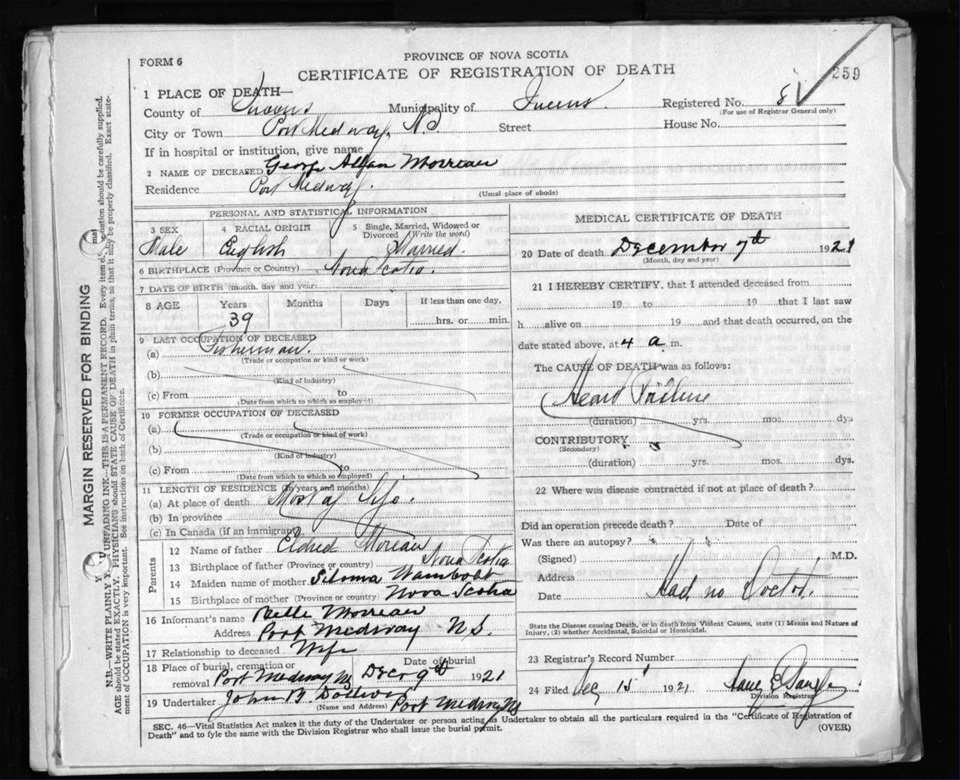 PROVINCE OF NOVA SCOTIA
FORM 6
CERTIFICATE OF REGISTRATION OF DEATH
259
1 PLACE OF DEATH—
County of Queens Municipality of Queens Registered No. 8
(For use of Registrar General only)
City or Town Port Medway, N.S. Street House No.
If in hospital or institution, give name
2 NAME OF DECEASED George Moreau
Residence Port Medway.
(Usual place of abode)
PERSONAL AND STATISTICAL INFORMATION
3 SEX 4 RACIAL ORIGIN 5 Single, Married, Widowed or Divorced (Write the word)
Male English Married.
6 BIRTHPLACE (Province or Country) Nova Scotia.
7 DATE OF BIRTH (month, day and year)
8 AGE Years Months Days If less than one day,
39 hrs. or min.
9 LAST OCCUPATION OF DECEASED
(a) Fisherman.
(Trade or occupation or kind or work)
(b)
(Kind of industry)
(c) From to
(Date from which to which so employed)
10 FORMER OCCUPATION OF DECEASED
(a)
(Trade or occupation or kind of work)
(b)
(Kind of industry)
(c) From to
(Date from which to which so employed)
11 LENGTH OF RESIDENCE (in years and months)
(a) At place of death Most of Life.
(b) In province
(c) In Canada (if an immigrant)
Parents
12 Name of father Moreau
13 Birthplace of father (Province or country) Nova Scotia
14 Maiden name of mother Wambolt
15 Birthplace of mother (Province or country) Nova Scotia
16 Informant's name Belle Moreau
Address Port Medway N.S.
17 Relationship to deceased Wife
18 Place of burial, cremation or removal Port Medway NS Date of burial Decr 9th 1921
19 Undertaker John Dolliver Port Medway NS
(Name and Address)
MEDICAL CERTIFICATE OF DEATH
20 Date of death December 7th 1921
(Month, day and year)
21 I HEREBY CERTIFY, that I attended deceased from
19 to 19 that I last saw
h alive on 19 and that death occurred, on the
date stated above, at 4 a. m.
The CAUSE OF DEATH was as follows:
Heart Failure
(duration) yrs. mos. dys
CONTRIBUTORY
(Secondary)
(duration) yrs. mos. dys.
22 Where was disease contracted if not at place of death?
Did an operation precede death? Date of
Was there an autopsy?
(Signed) M.D.
Address
Date Had no Doctor.
State the Disease causing Death, or in death from Violent Causes, state (1) Means and Nature of
Injury, (2) whether Accidental, Suicidal or Homicidal.
23 Registrar's Record Number
24 Filed Dec 15 1921
Division Registrar
SEC. 46—Vital Statistics Act makes it the duty of the Undertaker or person acting as Undertaker to obtain all the particulars required in the "Certificate of Registration of
Death" and to fyle the same with the Division Registrar who shall issue the burial permit.
(OVER)
MARGIN RESERVED FOR BINDING
N.B.—WRITE PLAINLY UNFADING INK—THIS IS A PERMANENT RECORD. Every item of information should be carefully supplied.
AGE should be stated EXACTLY. PHYSICIANS should STATE CAUSE OF DEATH in plain terms, so that it may be properly classified. Exact statement
of OCCUPATION is very important. See instructions on back of Certificate.